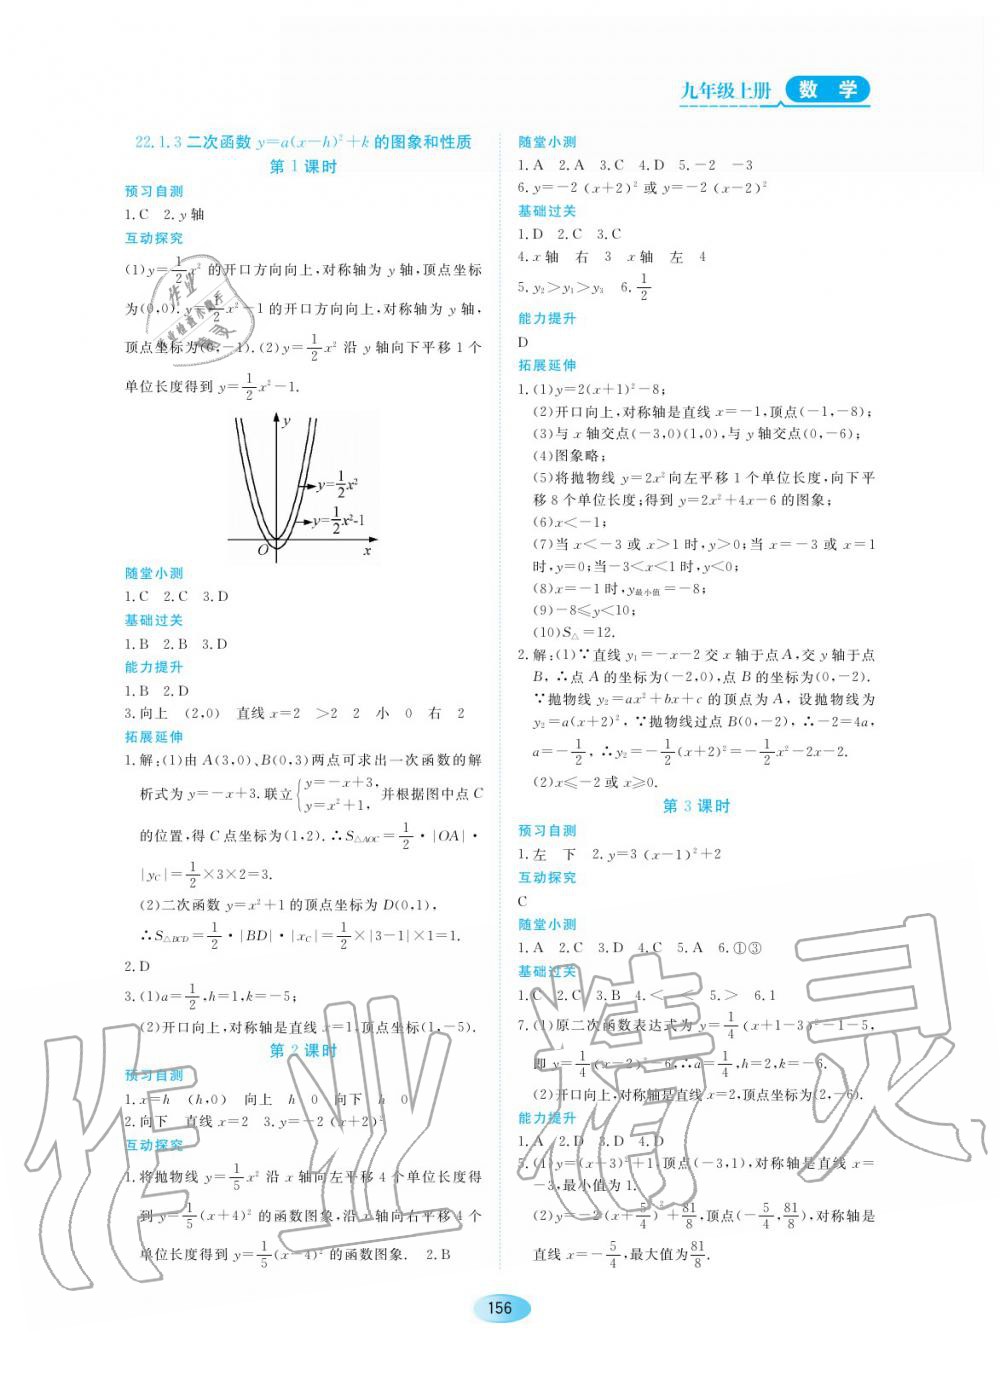 九年级上册 数学
22.1.3 二次函数 y=a(x-h)²+k 的图象和性质
第 1 课时
预习自测
1.C 2.y 轴
互动探究
(1)y=1/2x² 的开口方向向上,对称轴为 y 轴,顶点坐标
为(0,0).y=1/2x²-1 的开口方向向上,对称轴为 y 轴,
顶点坐标为(0,-1).(2)y=1/2x² 沿 y 轴向下平移 1 个
单位长度得到 y=1/2x²-1.
y
y=1/2x²
y=1/2x²-1
O x
随堂小测
1.C 2.C 3.D
基础过关
1.B 2.B 3.D
能力提升
1.B 2.D
3.向上 (2,0) 直线 x=2 >2 2 小 0 右 2
拓展延伸
1.解:(1)由 A(3,0)、B(0,3)两点可求出一次函数的解
析式为 y=-x+3.联立{y=-x+3, y=x²+1, 并根据图中点 C
的位置,得 C 点坐标为(1,2).∴S△AOC=1/2·|OA|·
|yC|=1/2×3×2=3.
(2)二次函数 y=x²+1 的顶点坐标为 D(0,1),
∴S△BCD=1/2·|BD|·|xC|=1/2×|3-1|×1=1.
2.D
3.(1)a=1/2,h=1,k=-5;
(2)开口向上,对称轴是直线 x=1,顶点坐标(1,-5).
第 2 课时
预习自测
1.x=h (h,0) 向上 h 0 向下 h 0
2.向下 直线 x=2 3.y=-2(x+2)²
互动探究
1.将抛物线 y=1/5x² 沿 x 轴向左平移 4 个单位长度得
到 y=1/5(x+4)² 的函数图象,沿 x 轴向右平移 4 个
单位长度得到 y=1/5(x-4)² 的函数图象. 2.B
随堂小测
1.A 2.A 3.C 4.D 5.-2 -3
6.y=-2(x+2)² 或 y=-2(x-2)²
基础过关
1.D 2.C 3.C
4.x 轴 右 3 x 轴 左 4
5.y₂>y₁>y₃ 6.1/2
能力提升
D
拓展延伸
1.(1)y=2(x+1)²-8;
(2)开口向上,对称轴是直线 x=-1,顶点(-1,-8);
(3)与 x 轴交点(-3,0)(1,0),与 y 轴交点(0,-6);
(4)图象略;
(5)将抛物线 y=2x² 向左平移 1 个单位长度,向下平
移 8 个单位长度;得到 y=2x²+4x-6 的图象;
(6)x<-1;
(7)当 x<-3 或 x>1 时,y>0;当 x=-3 或 x=1
时,y=0;当-3<x<1 时,y<0;
(8)x=-1 时,y最小值=-8;
(9)-8≤y<10;
(10)S△=12.
2.解:(1)∵直线 y₁=-x-2 交 x 轴于点 A,交 y 轴于点
B,∴点 A 的坐标为(-2,0),点 B 的坐标为(0,-2).
∵抛物线 y₂=ax²+bx+c 的顶点为 A,设抛物线为
y₂=a(x+2)²,∵抛物线过点 B(0,-2),∴-2=4a,
a=-1/2,∴y₂=-1/2(x+2)²=-1/2x²-2x-2.
(2)x≤-2 或 x≥0.
第 3 课时
预习自测
1.左 下 2.y=3(x-1)²+2
互动探究
C
随堂小测
1.A 2.C 3.D 4.C 5.A 6.①③
基础过关
1.C 2.C 3.B 4.< < 5.> 6.1
7.(1)原二次函数表达式为 y=1/4(x+1-3)²-1-5,
即 y=1/4(x-2)²-6,∴a=1/4,h=2,k=-6.
(2)开口向上,对称轴是直线 x=2,顶点坐标为(2,-6).
能力提升
1.A 2.D 3.D 4.D
5.(1)y=(x+3)²+1,顶点(-3,1),对称轴是直线 x=
-3,最小值为 1.
(2)y=-2(x+5/4)²+81/8,顶点(-5/4,81/8),对称轴是
直线 x=-5/4,最大值为81/8.
156
作业精灵